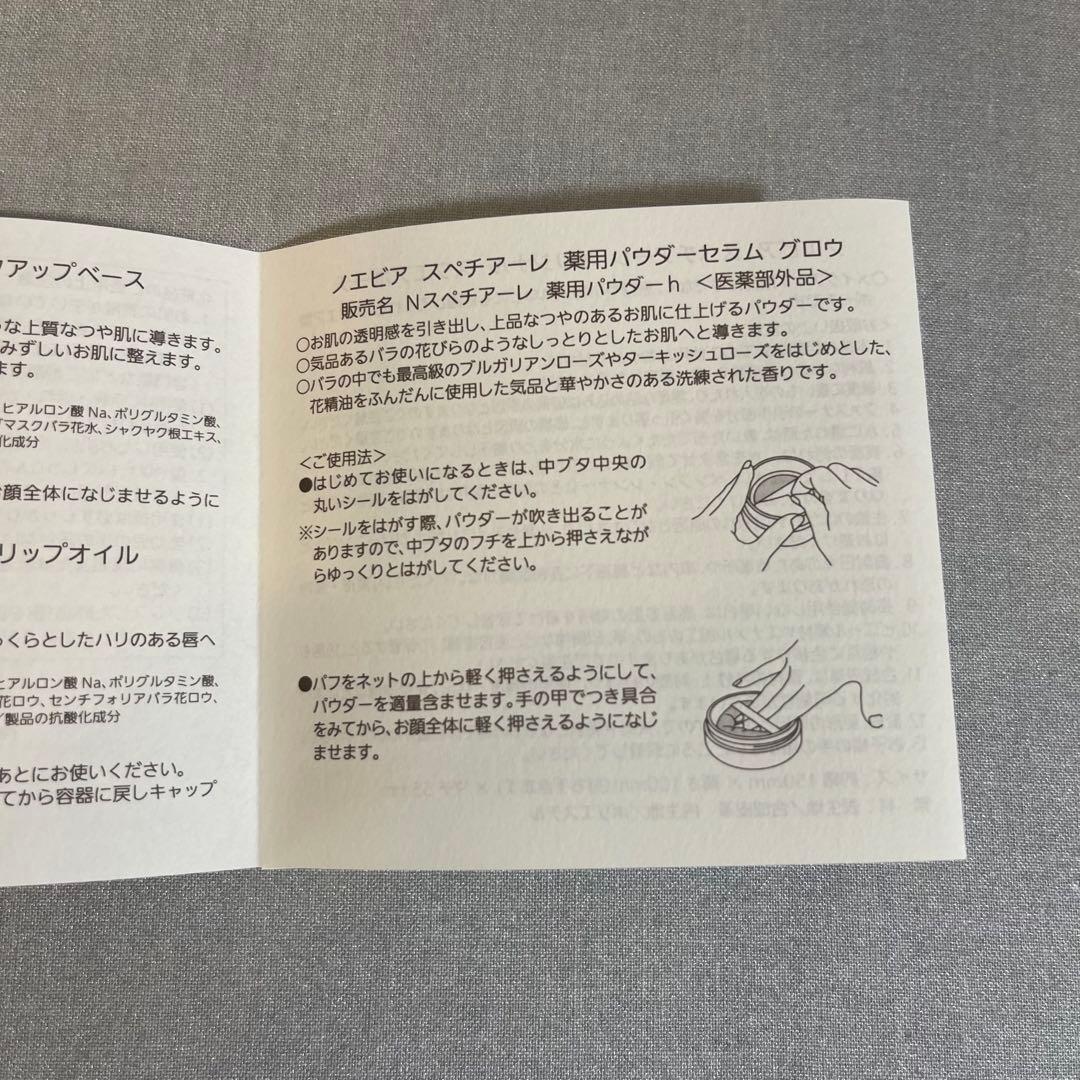 アップベース
な上質なつや肌に導きます。
みずしいお肌に整えます。
ます。
ヒアルロン酸 Na、ポリグルタミン酸、
マスクバラ花水、シャクヤク根エキス、
化成分
お顔全体になじませるように
リップオイル
っくらとしたハリのある唇へ
ヒアルロン酸 Na、ポリグルタミン酸、
花ロウ、センチフォリアバラ花ロウ、
/製品の抗酸化成分
あとにお使いください。
てから容器に戻しキャップ
ノエビア スペチアーレ 薬用パウダーセラム グロウ
販売名 Nスペチアーレ 薬用パウダーh <医薬部外品>
○お肌の透明感を引き出し、上品なつやのあるお肌に仕上げるパウダーです。
○気品あるバラの花びらのようなしっとりとしたお肌へと導きます。
○バラの中でも最高級のブルガリアンローズやターキッシュローズをはじめとした、
花精油をふんだんに使用した気品と華やかさのある洗練された香りです。
<ご使用法>
●はじめてお使いになるときは、中ブタ中央の
丸いシールをはがしてください。
※シールをはがす際、パウダーが吹き出ることが
ありますので、中ブタのフチを上から押さえなが
らゆっくりとはがしてください。
●パフをネットの上から軽く押さえるようにして、
パウダーを適量含ませます。手の甲でつき具合
をみてから、お顔全体に軽く押さえるようになじ
ませます。